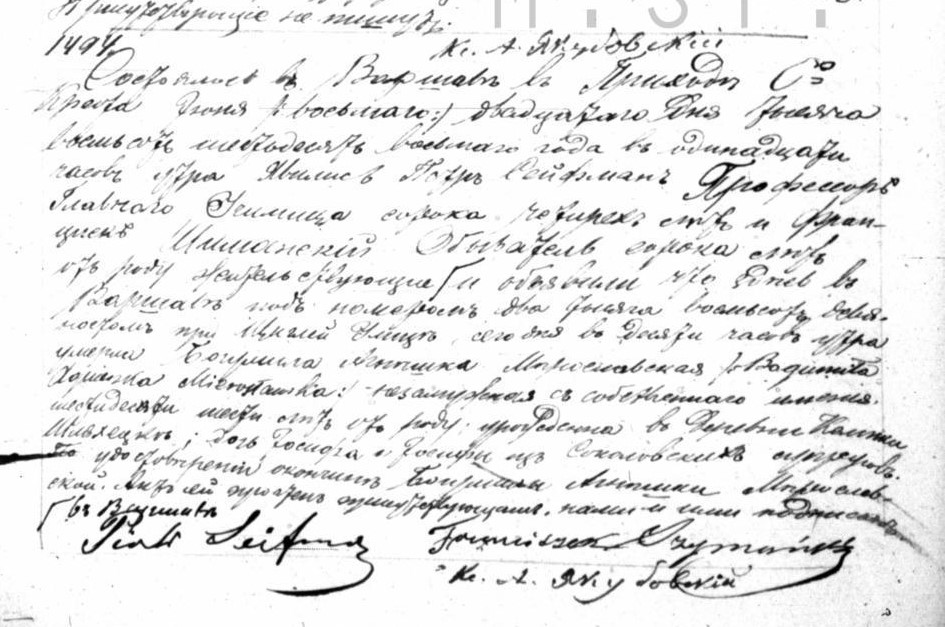 Присутствующие не пишут.
1494 Кс. А. Якубовскій
Состоялось въ Варшавѣ въ Приходѣ Сго
Креста Іюня /:восьмаго:/ двадцатаго Дня тысяча
восемьсотъ шестьдесятъ восьмаго года въ одинадцати
часовъ утра Явились Петръ Сейфманъ Профессоръ
Главнаго Училища сорока четырехъ лѣтъ и Фран-
цискъ Шиманскій Обыватель сорока лѣтъ
отъ роду жительствующіе и объявили что Днев въ
Варшавѣ подъ номеромъ два тысяча восемьсотъ девя-
ностомъ при улицѣ, сего дня въ десяти часовъ утра
умерла Богумила Антонина Мирославская
Mirosławska:/ незамужная съ собственнаго имѣнія
шестидесяти шести лѣтъ отъ роду; урожденна въ Деревни
дочь и Іосифы изъ Соколовскихъ супруговъ.
По удостовѣреніи о кончинѣ Богумилы Антонины Мирослав-
ской. Актъ сей прочтенъ присутствующимъ, нами и ими подписанъ
/въ Варшавѣ
Piotr Seifman Franciszek Szymański
Кс. А. Якубовскій